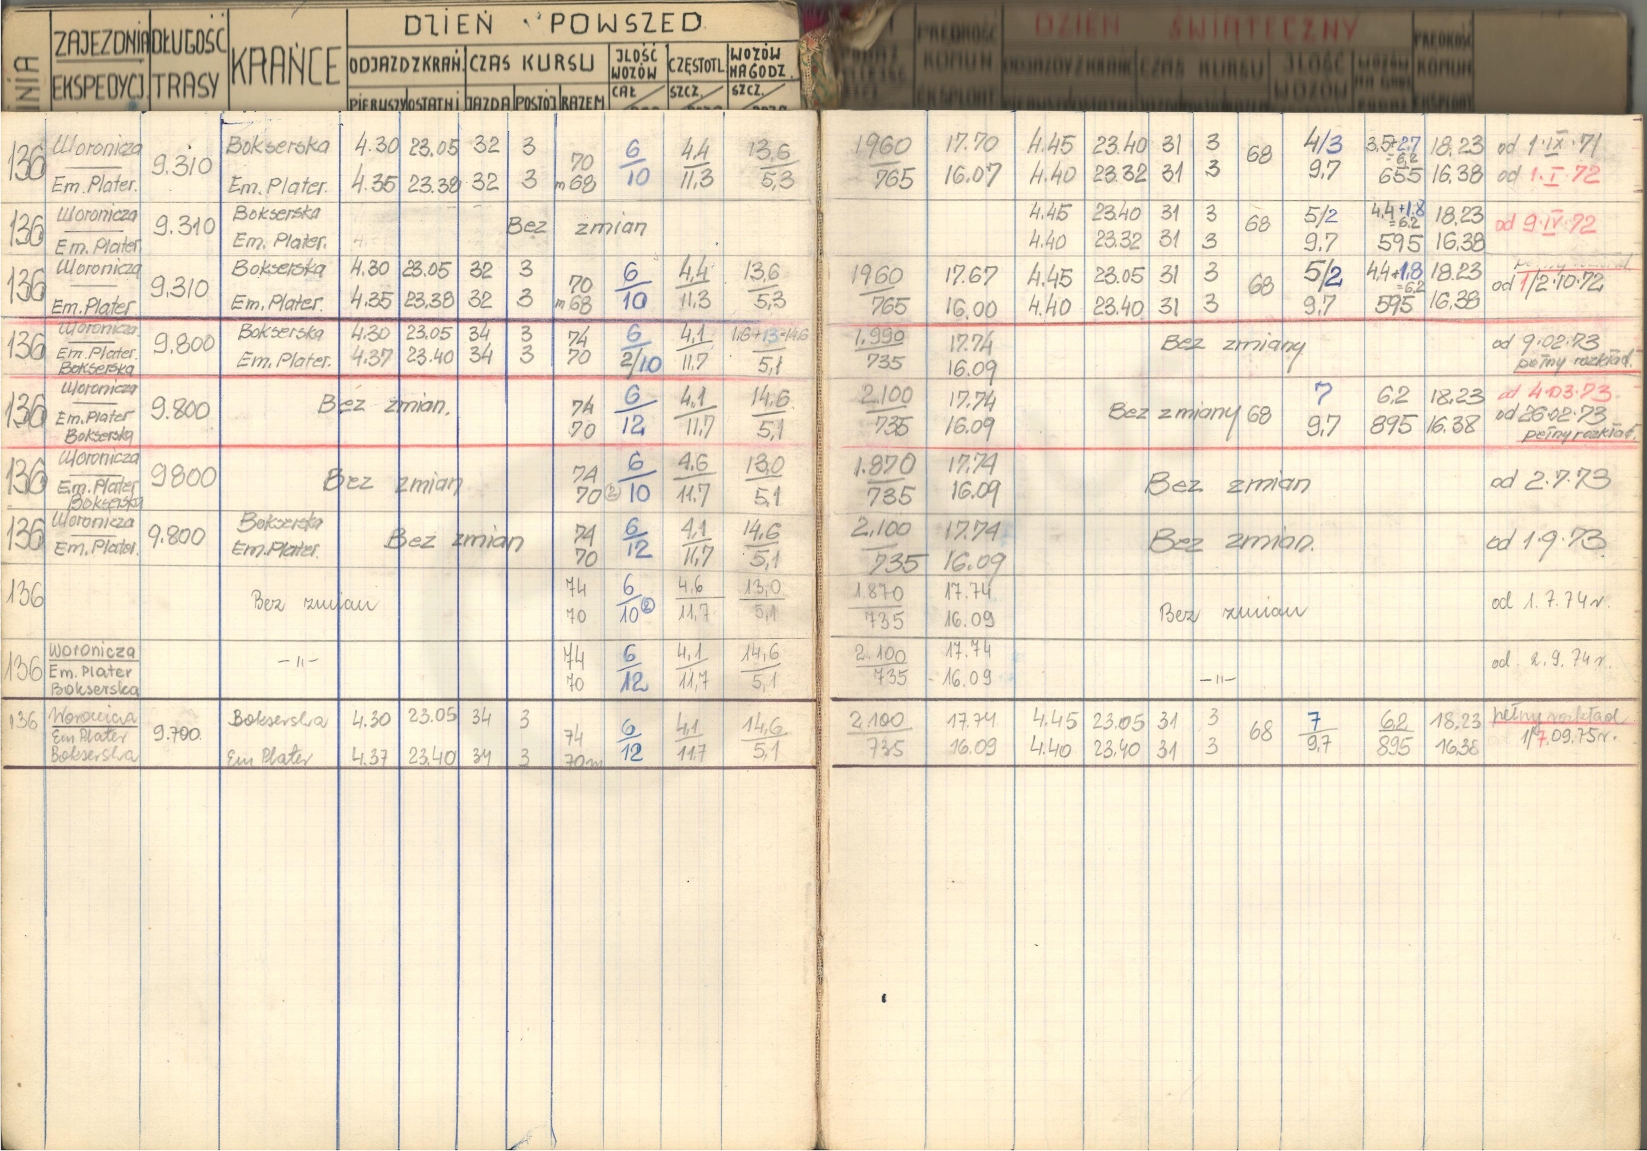 DZIEŃ POWSZED
DZIEŃ ŚWIĄTECZNY
LINIA ZAJEZDNIA DŁUGOŚĆ KRAŃCE ODJAZD Z KRAŃ. CZAS KURSU JLOŚĆ WOZÓW CZĘSTOTL. WOZÓW NA GODZ. PRĘDKOŚĆ KOMUN
EKSPEDYCJ. TRASY PIERUSZY OSTATNI JAZDA POSTÓJ RAZEM CAŁ SZCZ. SZCZ.
136 Woronicza 9.310 Bokserska 4.30 23.05 32 3 70 6 4,4 13,6 1960 17.70 4.45 23.40 31 3 68 4/3 3,5+2,7 =6,2 18,23 od 1·IX·71
Em. Plater. Em. Plater. 4.35 23.38 32 3 m 68 10 11,3 5,3 765 16,07 4.40 23.32 31 3 9,7 655 16,38 od 1·I·72
136 Woronicza 9.310 Bokserska Bez zmian 4.45 23.40 31 3 68 5/2 4,4+1,8 =6,2 18,23 od 9·IV·72
Em. Plater. Em. Plater. 4.40 23.32 31 3 9,7 595 16,38
136 Woronicza 9.310 Bokserska 4.30 23.05 32 3 70 6 4,4 13,6 1960 17.67 4.45 23.05 31 3 68 5/2 4,4+1,8 =6,2 18,23 od 1/2·10·72
Em. Plater Em. Plater. 4.35 23.38 32 3 m 68 10 11,3 5,3 765 16,00 4.40 23.40 31 3 9,7 595 16,38
136 Woronicza 9.800 Bokserska 4.30 23.05 34 3 74 6 4,1 1,6+13=14,6 1.990 17.74 Bez zmiany od 9·02·73
Em. Plater. Em. Plater. 4.37 23.40 34 3 70 2/10 11,7 5,1 735 16.09 pełny rozkład.
Bokserska
136 Woronicza 9.800 Bez zmian. 74 6 4,1 14,6 2.100 17.74 Bez zmiany 68 7 6,2 18,23 od 4·03·73.
Em. Plater 70 12 11,7 5,1 735 16.09 9,7 895 16.38 od 26·02·73
Bokserska pełny rozkład.
136 Woronicza 9800 Bez zmian 74 6 4,6 13,0 1.870 17.74 Bez zmian od 2·7·73
Em. Plater 70 (2) 10 11,7 5,1 735 16.09
Bokserska
136 Woronicza 9.800 Bokserska Bez zmian 74 6 4,1 14,6 2.100 17.74 Bez zmian. od 1·9·73.
Em. Plater. Em. Plater. 70 12 11,7 5,1 735 16.09
136 Bez zmian 74 6 4,6 13,0 1.870 17.74 Bez zmian od 1.7.74r.
70 10 (2) 11,7 5,1 735 16.09
136 Woronicza -„- 74 6 4,1 14,6 2.100 17.74 -„- od 2.9.74r.
Em. Plater 70 12 11,7 5,1 735 16.09
Bokserska
136 Woronicza 9.700. Bokserska 4.30 23.05 34 3 74 6 4,1 14,6 2.100 17.74 4.45 23.05 31 3 68 7 6,2 18,23 pełny rozkład
Em Plater Em Plater 4.37 23.40 34 3 70m 12 11,7 5,1 735 16.09 4.40 23.40 31 3 9,7 895 16,38 1/7.09.75r.
Bokserska